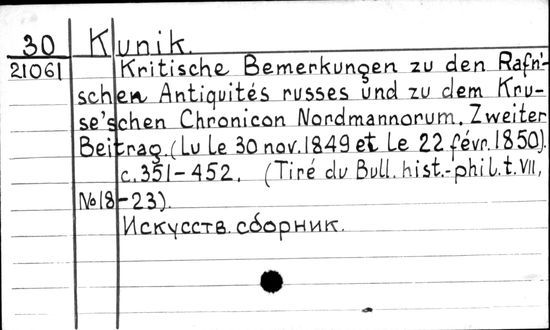 30 Kunik.
21061 Kritische Bemerkungen zu den Rafn'-
schen Antiquités russes und zu dem Kru-
se'schen Chronicon Nordmannorum. Zweiter
Beitrag. (Lu le 30 nov. 1849 et le 22 févr. 1850).
c. 351-452. (Tiré du Bull. hist.-phil. t. VII,
№ 18-23).
Искусств. сборник.